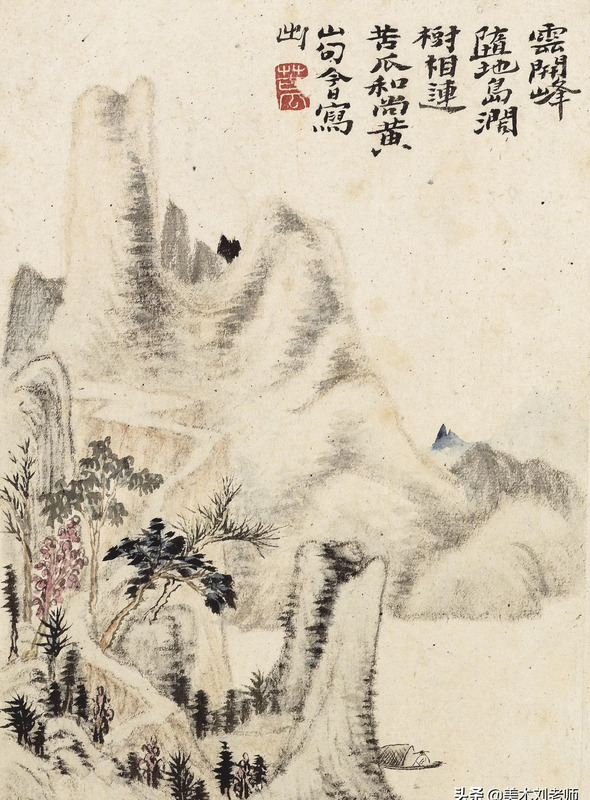 雲開峰
墮地島濶
樹相連
苦瓜和尚黃
山句今日寫
头条 @美术刘老师